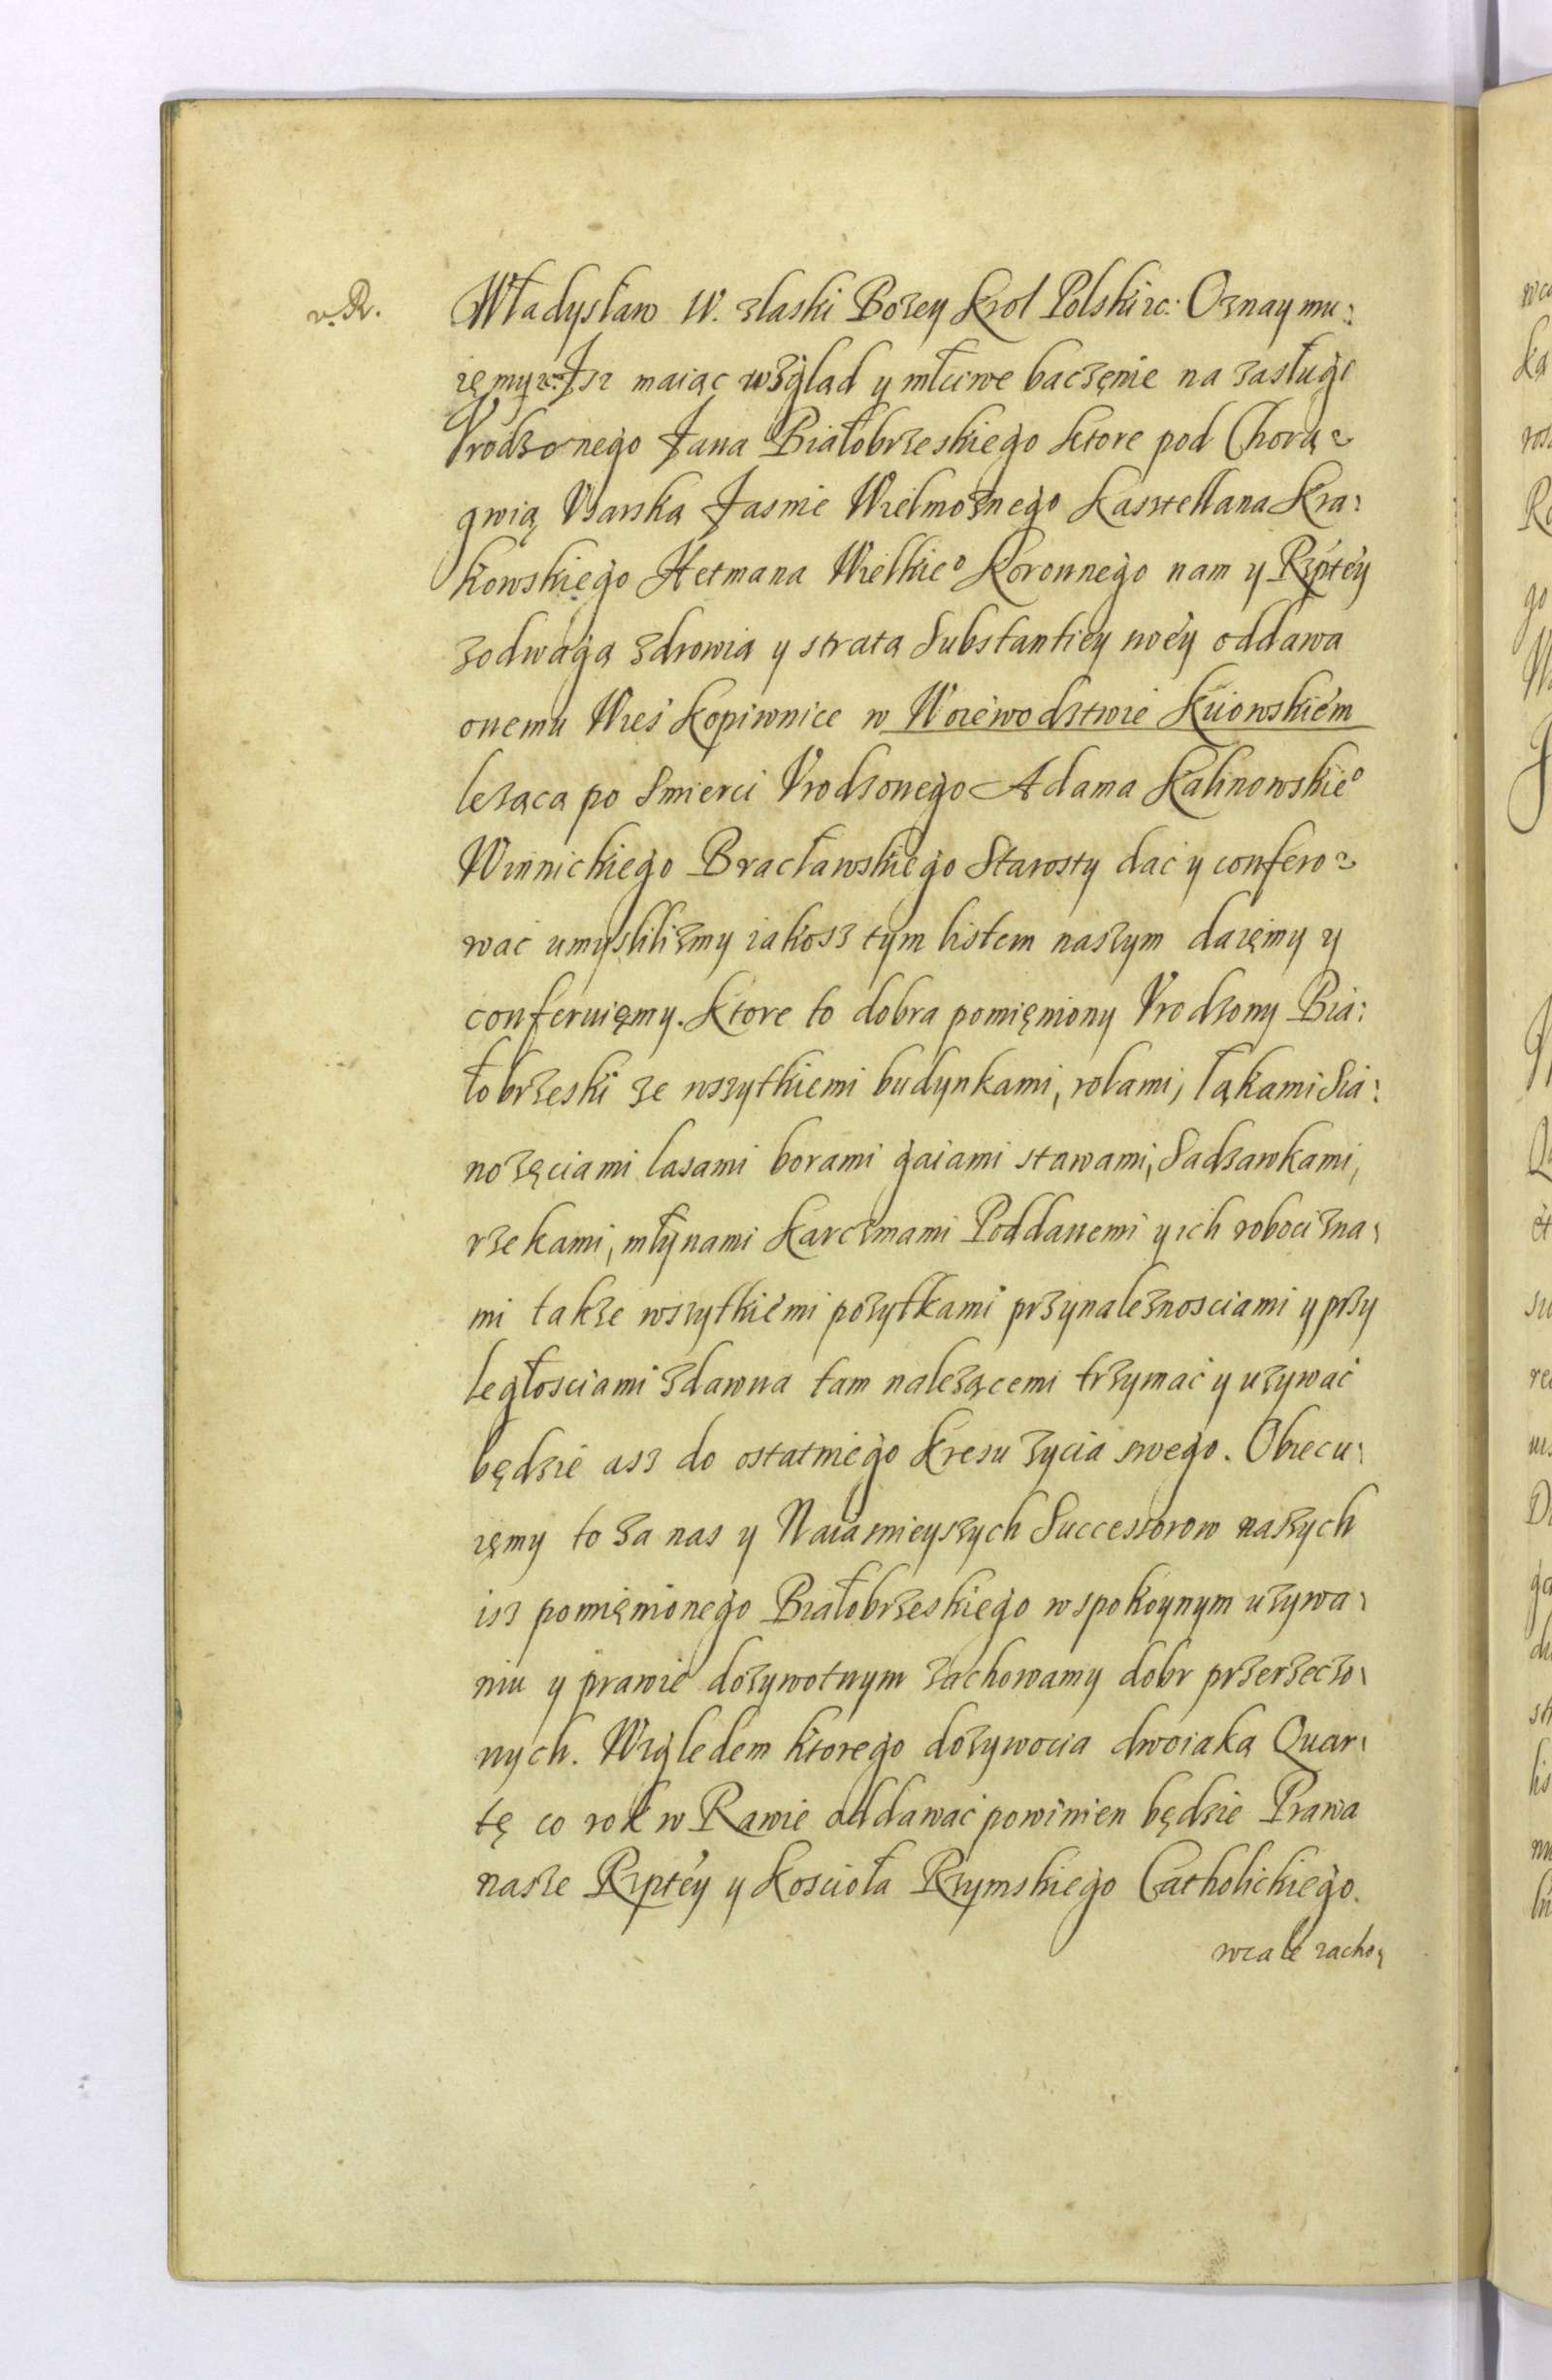 v. R.
Władysław IV. złaski Bożey Krol Polski etc: Oznaymu:
ięmy etc. Isz maiąc wzgląd y młciwe baczęnie na zasługi
Vrodzonego Jana Białobrzeskiego ktore pod Chorą:
gwią Vsarską Jasnie Wielmożnego Kasztellana Kra:
kowskiego Hetmana Wielkie⁰ Koronnego nam y Rzptey
zodwagą zdrowia y stratą Substantiey swey oddawa
onemu Wieś Kopiwnice w Woiewodztwie Kiiowskiem
leżącą po Smierci Vrodzonego Adama Kalinowskie⁰
Winnickiego Bracławskiego Starosty dać y confero:
wać umyslilismy iakosz tym listem naszym daięmy y
conferuięmy. Ktore to dobra pomięniony Vrodzony Bia:
łobrzeski ze wszytkiemi budynkami, rolami, łąkami Sia:
nożęciami lasami borami gaiami stawami, Sadzawkami,
rzekami, młynami Karczmami Poddanemi y ich robocizna:
mi także wszytkiemi pożytkami przynależnosciami y przy
ległosciami zdawna tam należącemi trzymać y używać
będzie asz do ostatniego kresu życia swego. Obiecu:
ięmy to za nas y Naiasnieyszych Successorow naszych
isz pomięnionego Białobrzeskiego w spokoynym używa:
niu y prawie dożywotnym zachowamy dobr przerzeczo:
nych. Wzgledem ktorego dożywocia dwoiaką Quar:
tę co rok w Rawie oddawać powinien będzie Prawa
nasze Rzptey y Koscioła Rzymskiego Catholickiego.
wcale zacho: